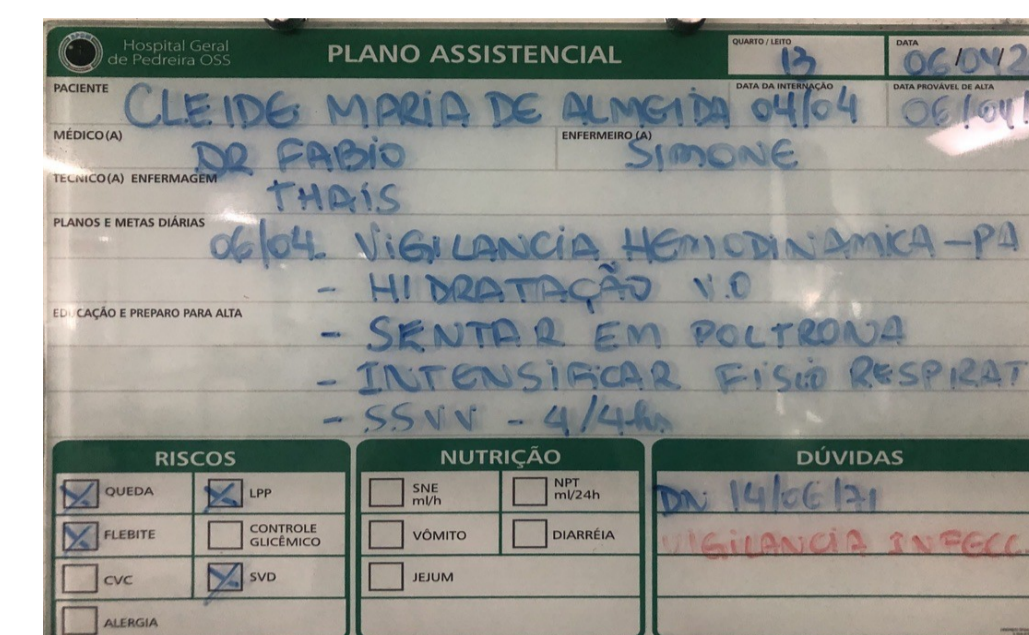 Hospital Geral
de Pedreira OSS
PLANO ASSISTENCIAL
QUARTO / LEITO
13
DATA
06/04/2
PACIENTE
CLEIDE MARIA DE ALMEIDA
DATA DA INTERNAÇÃO
04/04
DATA PROVÁVEL DE ALTA
06/04/
MÉDICO(A)
DR FABIO
ENFERMEIRO (A)
SIMONE
TÉCNICO(A) ENFERMAGEM
THAÍS
PLANOS E METAS DIÁRIAS
06/04. VIGILANCIA HEMODINAMICA-PA
- HIDRATAÇÃO V.O
EDUCAÇÃO E PREPARO PARA ALTA
- SENTAR EM POLTRONA
- INTENSIFICAR FISIO RESPIRAT
- SSVV - 4/4hs
RISCOS
QUEDA
LPP
FLEBITE
CONTROLE
GLICÊMICO
CVC
SVD
ALERGIA
NUTRIÇÃO
SNE
ml/h
NPT
ml/24h
VÔMITO
DIARRÉIA
JEJUM
DÚVIDAS
DN: 14/06/71
VIGILANCIA INFECC